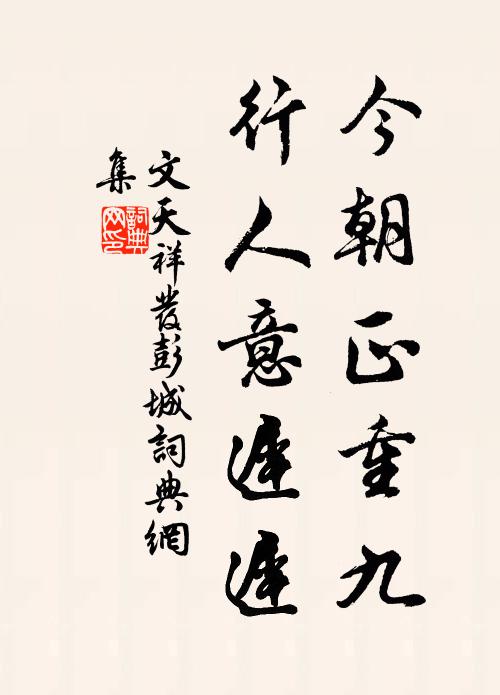 今朝正重九
行人意遲遲
文天祥發彭城詞典網
集
詞典
网印